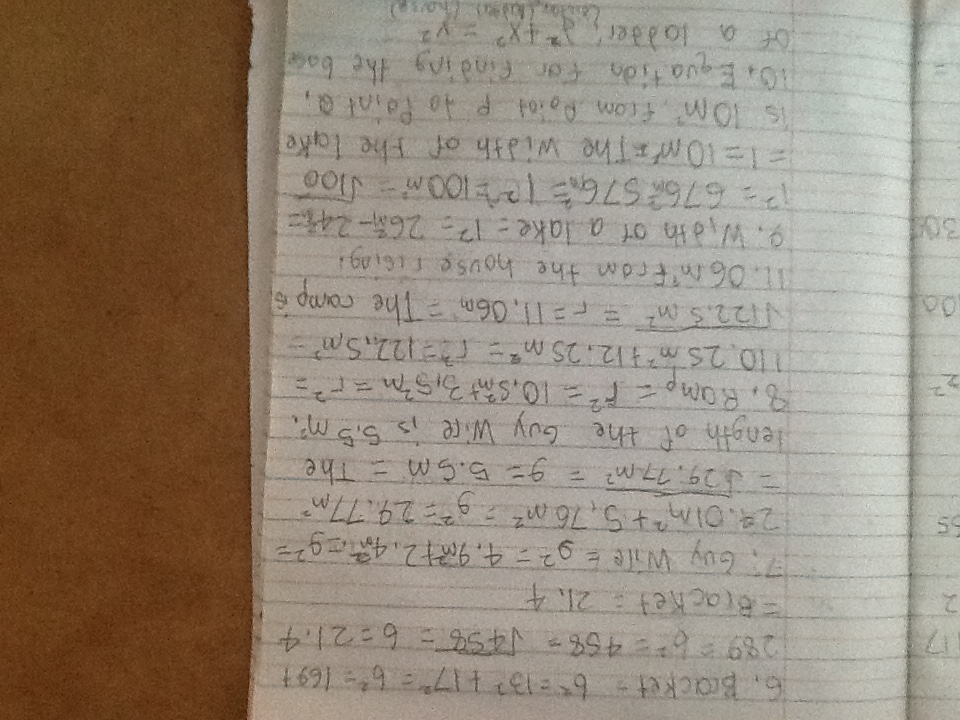 6. Bracket = b² = 13² + 17² = b² = 169 +
117
289 = b² = 458 = √458 = b = 21.4
2
= Bracket = 21.4
7. Guy Wire = g² = 4.9m² + 2.4m² = g² =
55
24.01m² + 5.76m² = g² = 29.77m²
= √29.77m² = g = 5.5m = The
length of the Guy Wire is 5.5m².
8. Ramp = r² = 10.5²m + 3.5²m = r² =
2²
110.25m² + 12.25m² = r² = 122.5m² =
√122.5m² = r = 11.06m = The ramp is
00
11.06m² from the house rising.
9. Width of a lake = l² = 26²m - 24²m =
306
l² = 676m² 576m² = l² = 100m² = √100
= l = 10m² = The width of the lake
is 10m² from Point P to Point Q.
10. Equation for finding the base
=
of a ladder; y² + x² = y²
(ladder) (house)